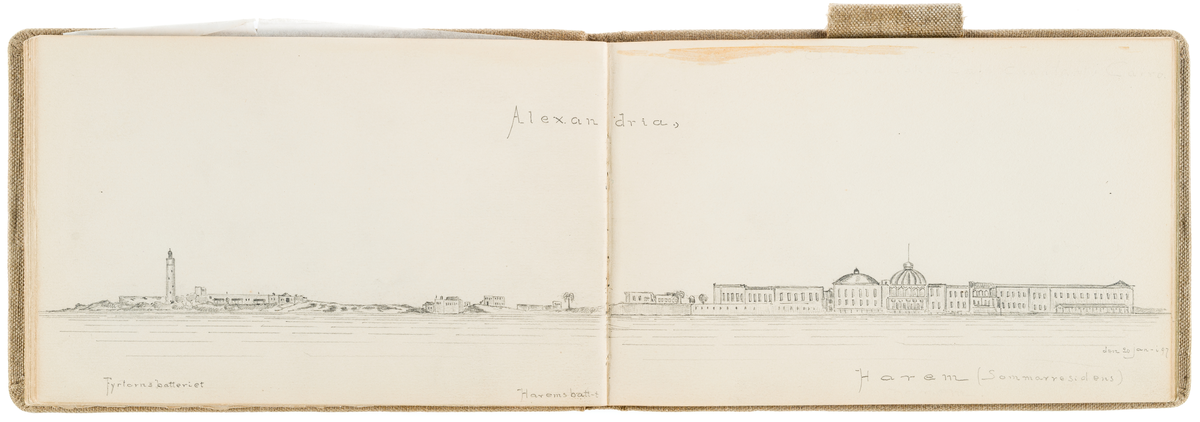 Alexandria,
Fyrtornsbatteriet
Haremsbatt-t
Harem (Sommarresidens)